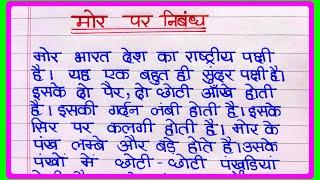 मोर पर निबंध
मोर भारत देश का राष्ट्रीय पक्षी
है। यह एक बहुत ही सुंदर पक्षी है।
इसके दो पैर, दो छोटी आँखे होती
है। इसकी गर्दन लंबी होती है। इसके
सिर पर कलगी होती है। मोर के
पंख लम्बे और बड़े होते है। उसके
पंखों में छोटी-छोटी पंखुडियां